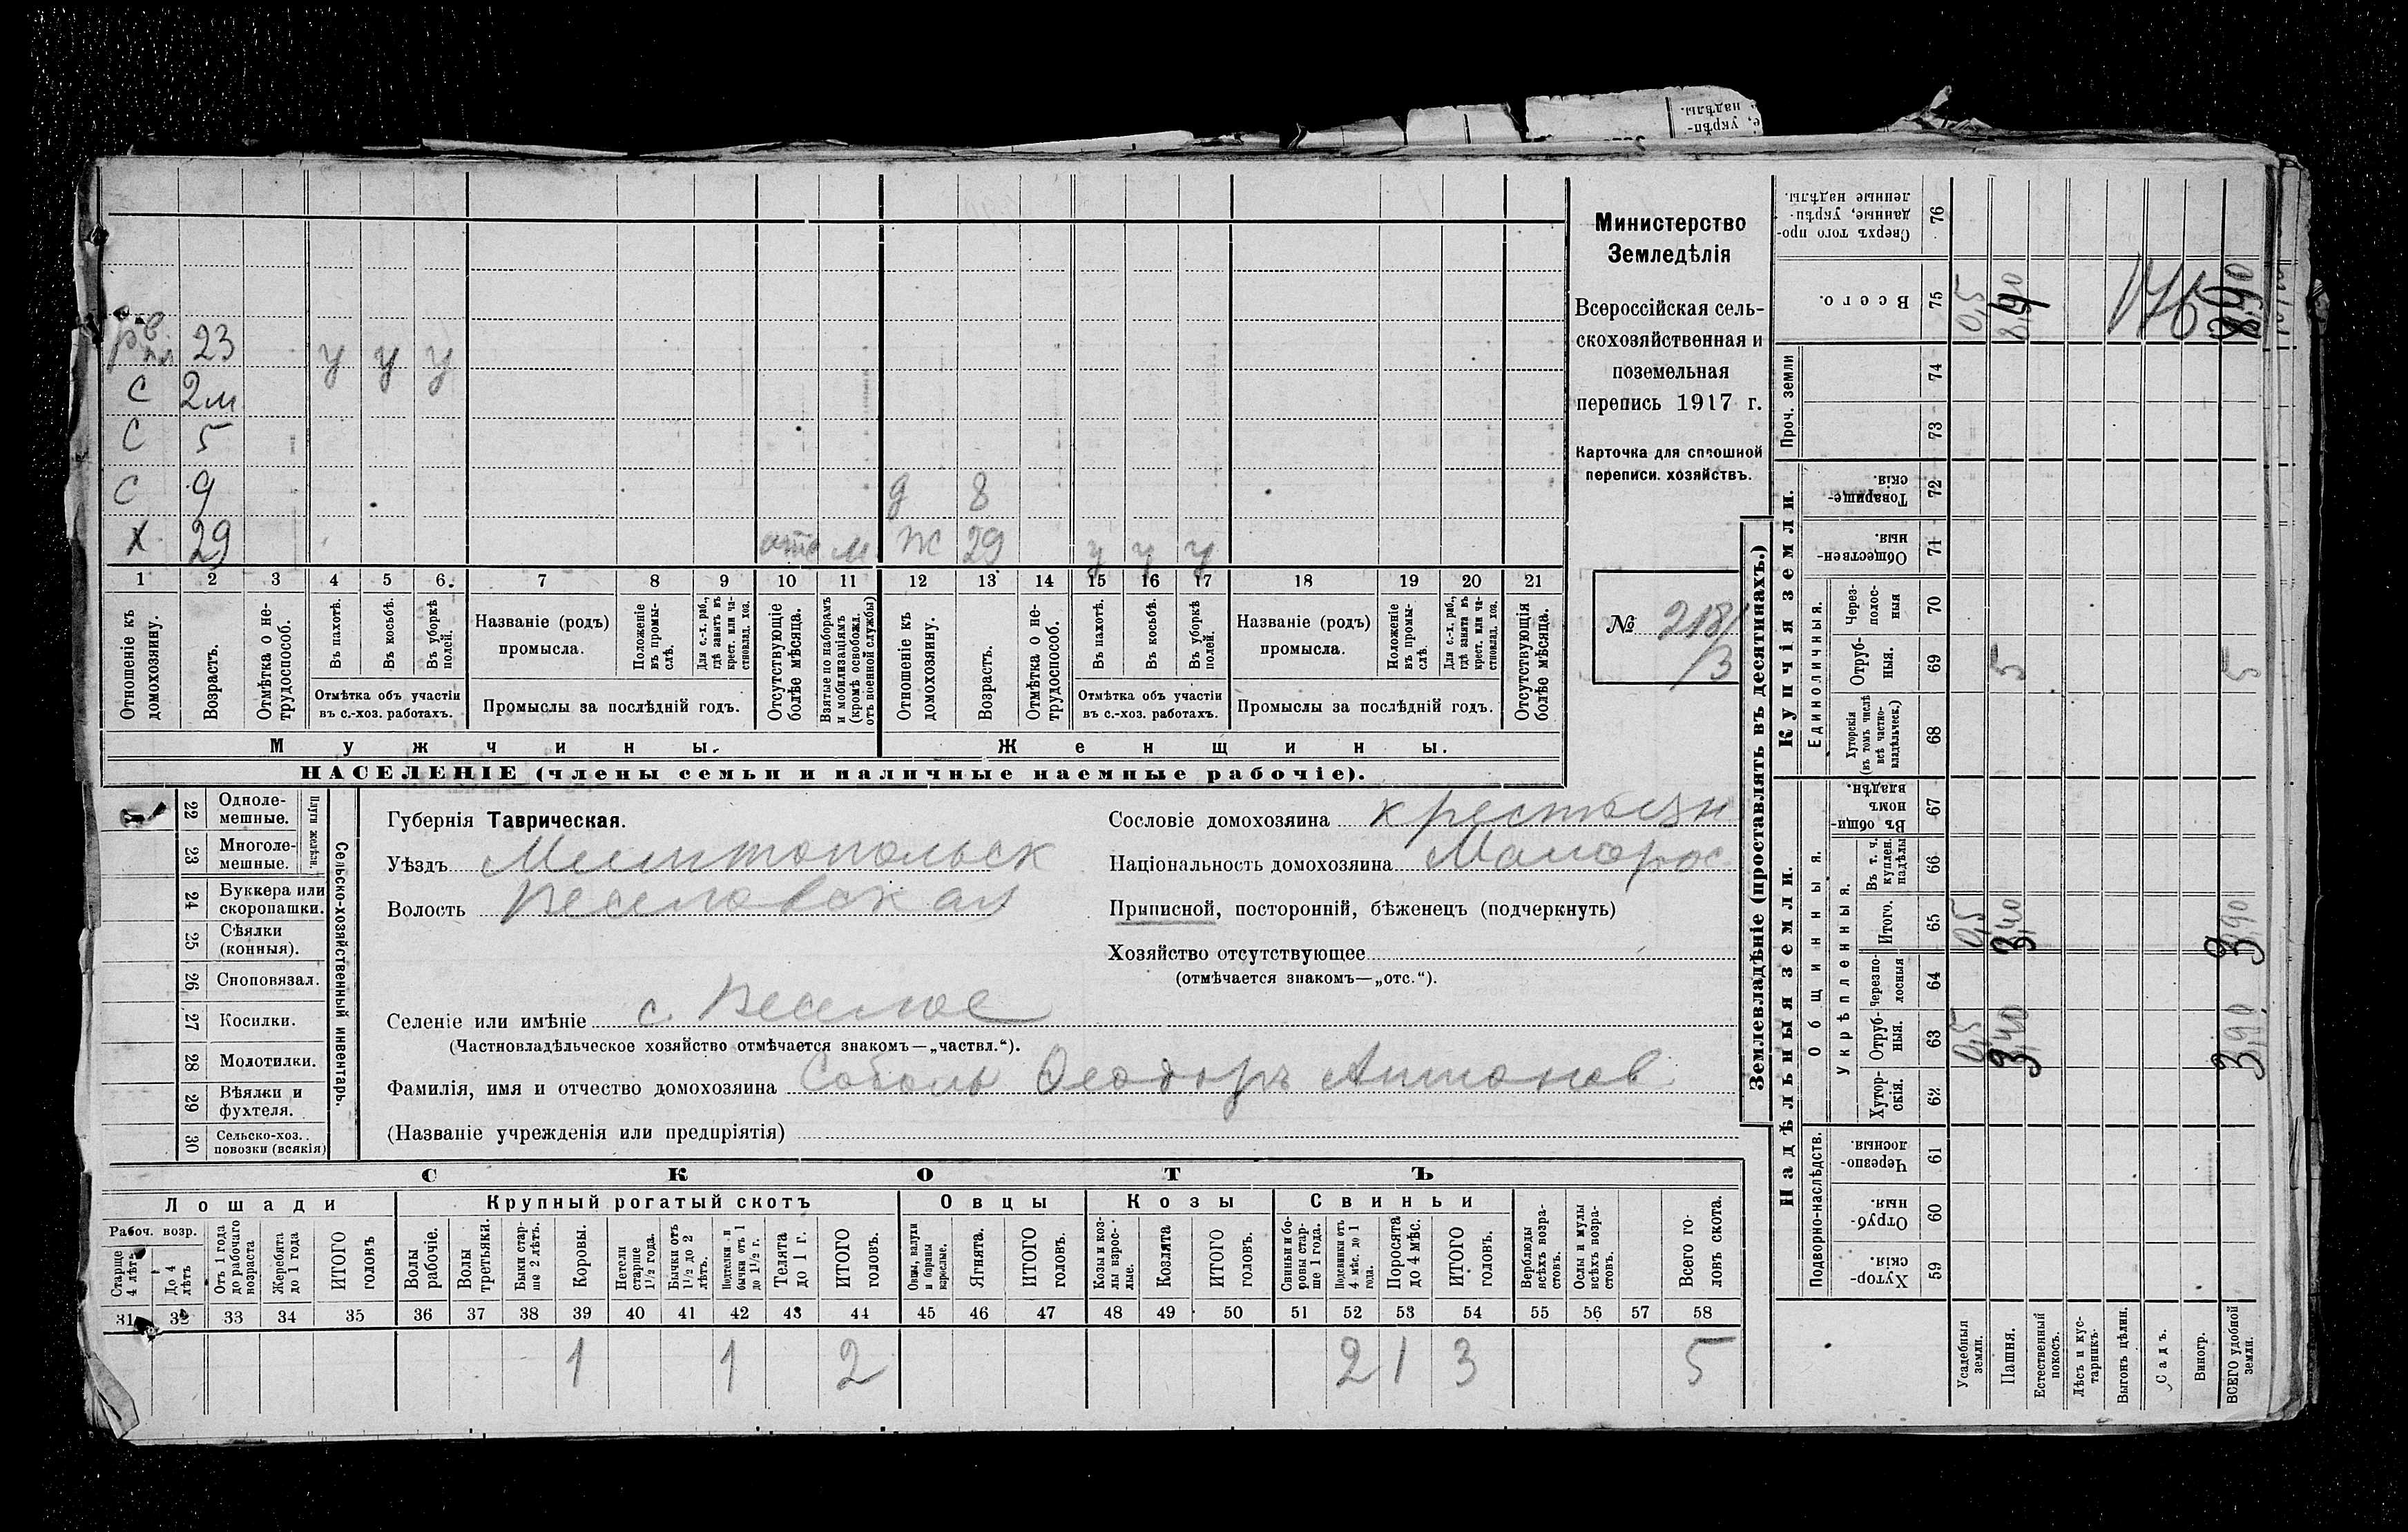 Министерство
Земледѣлія
Всероссійская сель-
скохозяйственная и
поземельная
перепись 1917 г.
Карточка для сплошной
переписи хозяйствъ.
№ 218/3
23 у у у
С 2м
С 5
С 9 д 8
Х 29 отс м Ж 29 у у у
1 2 3 4 5 6 7 8 9 10 11 12 13 14 15 16 17 18 19 20 21
Отношеніе къ домохозяину.
Возрастъ.
Отмѣтка о не-трудоспособ.
Въ пахотѣ.
Въ косьбѣ.
Въ уборкѣ полей.
Отмѣтка объ участіи
въ с.-хоз. работахъ.
Названіе (родъ)
промысла.
Положеніе въ промы-слѣ.
Для с.-х. раб., гдѣ занятъ въ крест. или ча-стновлад. хоз.
Промыслы за послѣдній годъ.
Отсутствующіе болѣе мѣсяца.
Взятые по наборамъ и мобилизаціямъ (кромѣ освобожд. отъ военной службы)
Отношеніе къ домохозяину.
Возрастъ.
Отмѣтка о не-трудоспособ.
Въ пахотѣ.
Въ косьбѣ.
Въ уборкѣ полей.
Отмѣтка объ участіи
въ с.-хоз. работахъ.
Названіе (родъ)
промысла.
Положеніе въ промы-слѣ.
Для с.-х. раб., гдѣ занята въ крест. или ча-стновлад. хоз.
Промыслы за послѣдній годъ.
Отсутствующія болѣе мѣсяца.
Мужчины. Женщины.
НАСЕЛЕНІЕ (члены семьи и наличные наемные рабочіе).
Сельско-хозяйственный инвентарь.
Плуги желѣзн.
22 Одноле-мешные. 1
23 Многоле-мешные.
24 Буккера или скоропашки.
25 Сѣялки (конныя).
26 Сноповязал.
27 Косилки.
28 Молотилки.
29 Вѣялки и фухтеля.
30 Сельско-хоз. повозки (всякія)
Губернія Таврическая.
Уѣздъ Мелитопольск
Волость Веселовская
Селеніе или имѣніе с. Веселое
(Частновладѣльческое хозяйство отмѣчается знакомъ—„частвл.“).
Фамилія, имя и отчество домохозяина Соболь Феодоръ Антонов
(Названіе учрежденія или предпріятія)
Сословіе домохозяина крестьян
Національность домохозяина Малорос
Приписной, посторонній, бѣженецъ (подчеркнуть)
Хозяйство отсутствующее
(отмѣчается знакомъ—„отс.“).
СКОТЪ
Лошади Крупный рогатый скотъ Овцы Козы Свиньи
Рабоч. возр.
Старше 4 лѣтъ
До 4 лѣтъ
Отъ 1 года до рабочаго возраста
Жеребята до 1 года
ИТОГО головъ
Волы рабочіе.
Волы третьяки.
Быки стар-ше 2 лѣтъ.
Коровы.
Нетели старше 1½ года.
Бычки отъ 1½ до 2 лѣтъ.
Подтелки и бычки отъ 1 до 1½ г.
Телята до 1 г.
ИТОГО головъ.
Овцы, валухи и бараны взрослые.
Ягнята.
ИТОГО головъ.
Козы и коз-лы взрос-лые.
Козлята
ИТОГО головъ.
Свиньи и бо-ровы стар-ше 1 года.
Подсвинки отъ 4 мѣс. до 1 года.
Поросята до 4 мѣс.
ИТОГО головъ.
Верблюды всѣхъ возра-стовъ.
Ослы и мулы всѣхъ возра-стовъ.
Всего го-ловъ скота.
31 32 33 34 35 36 37 38 39 40 41 42 43 44 45 46 47 48 49 50 51 52 53 54 55 56 57 58
1 1 2 2 1 3 5
Землевладѣніе (проставлять въ десятинахъ.)
Надѣльныя земли. Купчія земли. Проч. земли
Подворно-наслѣдств.
Общинныя.
Укрѣпленныя.
Единоличныя.
Хутор-скія. 59
Отруб-ныя. 60
Черезпо-лосныя 61
Хутор-скія. 62
Отруб-ныя. 63 0,5 3,40 3,90
Черезпо-лосныя 64
Итого. 65 0,5 3,40 3,90
Въ т. ч. куплен. надѣлы 66
Въ общин-номъ владѣн. 67
Хуторскія (въ томъ числѣ всѣ частно-владѣльческ.) 68
Отруб-ныя. 69 5 5
Через-полос-ныя 70
Обществен-ныя. 71
Товарище-скія. 72
73
74
Всего. 75 0,5 8,40 176 8,90
Сверхъ того про-данные, укрѣп-ленные надѣлы. 76
Усадебныя земли.
Пашня.
Естественный покосъ.
Лѣсъ и кус-тарникъ.
Выгонъ цѣлин.
Садъ.
Виногр.
ВСЕГО удобной земли.